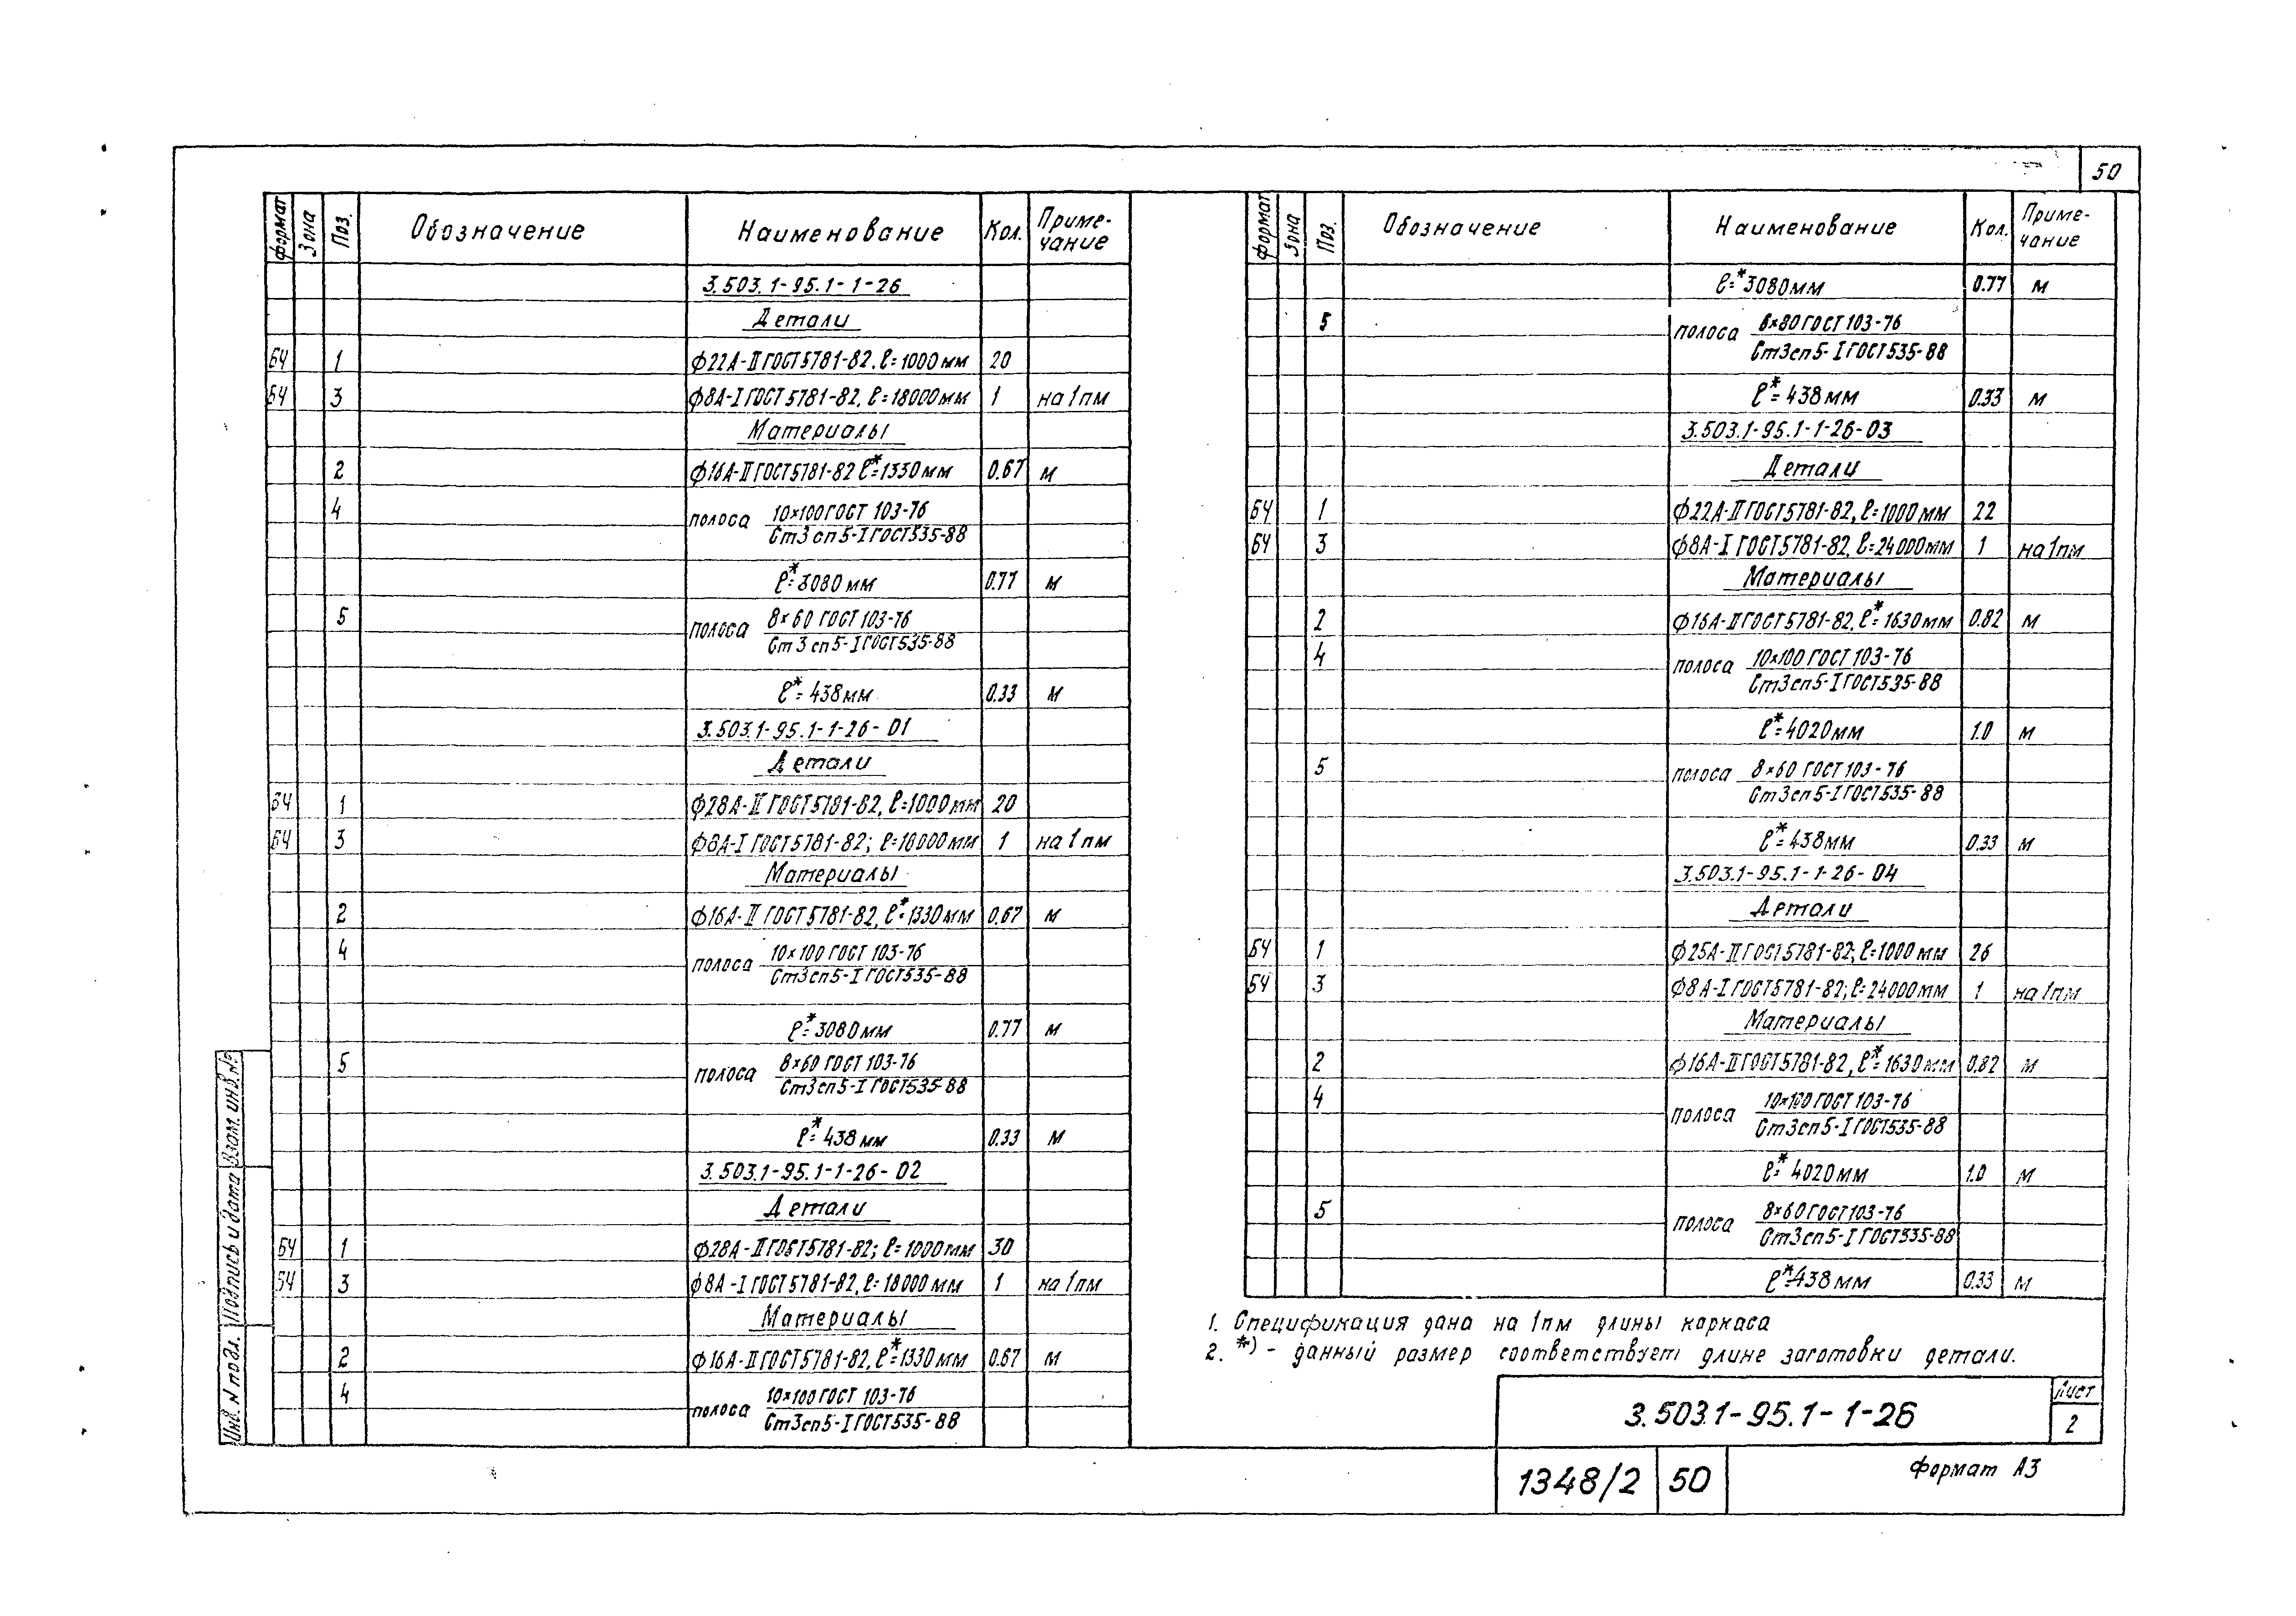 50
формат Зона Поз. Обозначение Наименование Кол. Приме-
чание
3.503.1-95.1-1-26
Детали
БЧ 1 Ф22А-II ГОСТ5781-82. ℓ=1000мм 20
БЧ 3 Ф8А-I ГОСТ5781-82, ℓ=18000мм 1 на 1 пм
Материалы
2 Ф16А-II ГОСТ5781-82 ℓ*=1330мм 0.67 м
4 полоса 10×100 ГОСТ 103-76
Ст3сп5-I ГОСТ535-88
ℓ*=3080мм 0.77 м
5 полоса 8×60 ГОСТ 103-76
Ст3сп5-I ГОСТ535-88
ℓ*=438мм 0.33 м
3.503.1-95.1-1-26-01
Детали
БЧ 1 Ф28А-II ГОСТ5781-82, ℓ=1000мм 20
БЧ 3 Ф8А-I ГОСТ5781-82; ℓ=18000мм 1 на 1 пм
Материалы
2 Ф16А-II ГОСТ5781-82, ℓ*=1330мм 0.67 м
4 полоса 10×100 ГОСТ 103-76
Ст3сп5-I ГОСТ535-88
ℓ*=3080мм 0.77 м
5 полоса 8×60 ГОСТ 103-76
Ст3сп5-I ГОСТ535-88
ℓ*=438мм 0.33 м
3.503.1-95.1-1-26-02
Детали
БЧ 1 Ф28А-II ГОСТ5781-82; ℓ=1000мм 30
БЧ 3 Ф8А-I ГОСТ5781-82, ℓ=18000мм 1 на 1пм
Материалы
2 Ф16А-II ГОСТ5781-82, ℓ*=1330мм 0.67 м
4 полоса 10×100 ГОСТ 103-76
Ст3сп5-I ГОСТ535-88
формат Зона Поз. Обозначение Наименование Кол. Приме-
чание
ℓ*=3080мм 0.77 м
5 полоса 8×80 ГОСТ 103-76
Ст3сп5-I ГОСТ535-88
ℓ*=438мм 0.33 м
3.503.1-95.1-1-26-03
Детали
БЧ 1 Ф22А-II ГОСТ5781-82, ℓ=1000мм 22
БЧ 3 Ф8А-I ГОСТ5781-82, ℓ=24000мм 1 на 1пм
Материалы
2 Ф16А-II ГОСТ5781-82, ℓ*=1630мм 0.82 м
4 полоса 10×100 ГОСТ 103-76
Ст3сп5-I ГОСТ535-88
ℓ*=4020мм 1.0 м
5 полоса 8×60 ГОСТ 103-76
Ст3сп5-I ГОСТ535-88
ℓ*=438мм 0.33 м
3.503.1-95.1-1-26-04
Детали
БЧ 1 Ф25А-II ГОСТ5781-82; ℓ=1000мм 26
БЧ 3 Ф8А-I ГОСТ5781-82; ℓ=24000мм 1 на 1пм
Материалы
2 Ф16А-II ГОСТ5781-82, ℓ*=1630мм 0.82 м
4 полоса 10×100 ГОСТ 103-76
Ст3сп5-I ГОСТ535-88
ℓ*=4020мм 1.0 м
5 полоса 8×60 ГОСТ 103-76
Ст3сп5-I ГОСТ535-88
ℓ*=438мм 0.33 м
1. Спецификация дана на 1пм длины каркаса
2. *) - данный размер соответствует длине заготовки детали.
Инв. N подл. Подпись и дата Взам. инв. №
3.503.1-95.1-1-26
Лист
2
1348/2 50
Формат А3